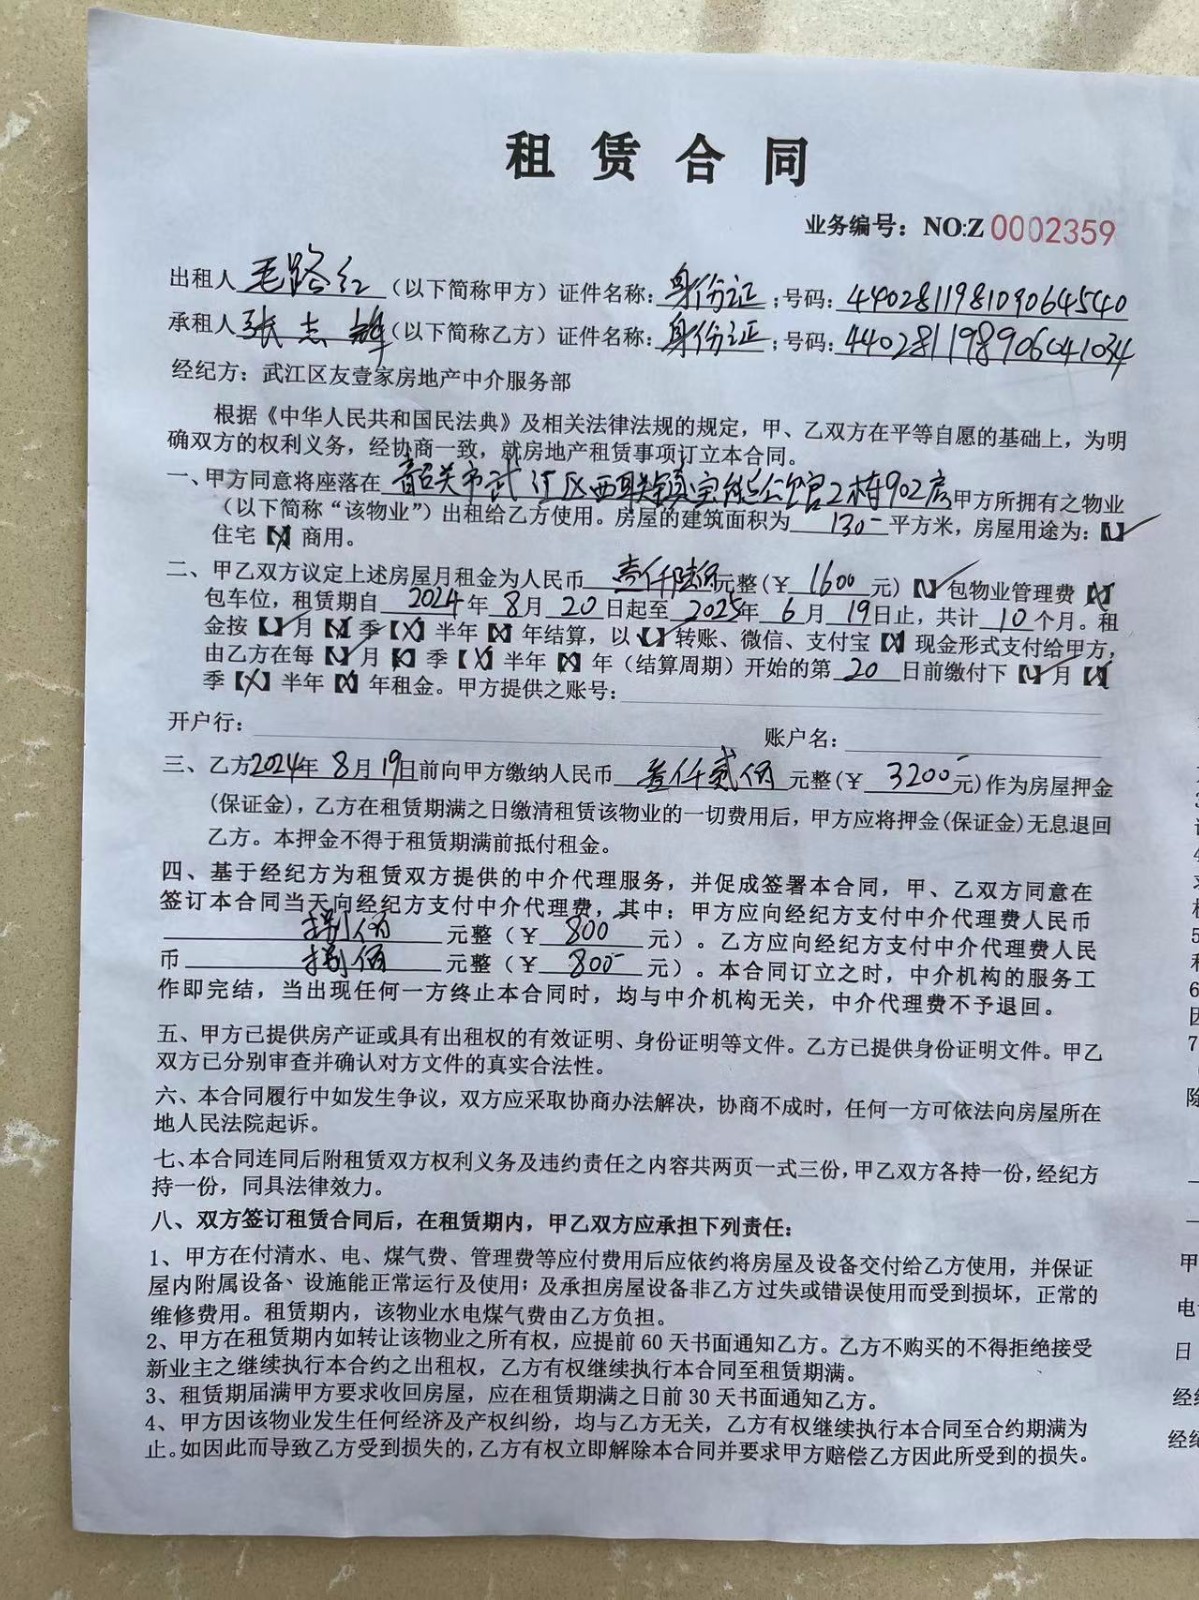 租赁合同
业务编号：NO:Z 0002359
出租人毛路红（以下简称甲方）证件名称：身份证；号码：440281198109064540
承租人张志雄（以下简称乙方）证件名称：身份证；号码：440281198906041034
经纪方：武江区友壹家房地产中介服务部
根据《中华人民共和国民法典》及相关法律法规的规定，甲、乙双方在平等自愿的基础上，为明
确双方的权利义务，经协商一致，就房地产租赁事项订立本合同。
一、甲方同意将座落在韶关市武江区西联镇宝能公馆2栋902房甲方所拥有之物业
（以下简称“该物业”）出租给乙方使用。房屋的建筑面积为130平方米，房屋用途为：【✓】
住宅【X】商用。
二、甲乙双方议定上述房屋月租金为人民币壹仟陆佰元整(￥1600元)【✓】包物业管理费【X】
包车位，租赁期自2024年8月20日起至2025年6月19日止，共计10个月。租
金按【✓】月【X】季【X】半年【X】年结算，以【✓】转账、微信、支付宝【X】现金形式支付给甲方，
由乙方在每【✓】月【X】季【X】半年【X】年（结算周期）开始的第20日前缴付下【✓】月【X】
季【X】半年【X】年租金。甲方提供之账号：
开户行： 账户名：
三、乙方2024年8月19日前向甲方缴纳人民币叁仟贰佰元整(￥3200元)作为房屋押金
(保证金)，乙方在租赁期满之日缴清租赁该物业的一切费用后，甲方应将押金(保证金)无息退回
乙方。本押金不得于租赁期满前抵付租金。
四、基于经纪方为租赁双方提供的中介代理服务，并促成签署本合同，甲、乙双方同意在
签订本合同当天向经纪方支付中介代理费，其中：甲方应向经纪方支付中介代理费人民币
捌佰元整（￥800元）。乙方应向经纪方支付中介代理费人民
币捌佰元整（￥800元）。本合同订立之时，中介机构的服务工
作即完结，当出现任何一方终止本合同时，均与中介机构无关，中介代理费不予退回。
五、甲方已提供房产证或具有出租权的有效证明、身份证明等文件。乙方已提供身份证明文件。甲乙
双方已分别审查并确认对方文件的真实合法性。
六、本合同履行中如发生争议，双方应采取协商办法解决，协商不成时，任何一方可依法向房屋所在
地人民法院起诉。
七、本合同连同后附租赁双方权利义务及违约责任之内容共两页一式三份，甲乙双方各持一份，经纪方
持一份，同具法律效力。
八、双方签订租赁合同后，在租赁期内，甲乙双方应承担下列责任：
1、甲方在付清水、电、煤气费、管理费等应付费用后应依约将房屋及设备交付给乙方使用，并保证
屋内附属设备、设施能正常运行及使用；及承担房屋设备非乙方过失或错误使用而受到损坏，正常的
维修费用。租赁期内，该物业水电煤气费由乙方负担。
2、甲方在租赁期内如转让该物业之所有权，应提前60天书面通知乙方。乙方不购买的不得拒绝接受
新业主之继续执行本合约之出租权，乙方有权继续执行本合同至租赁期满。
3、租赁期届满甲方要求收回房屋，应在租赁期满之日前30天书面通知乙方。
4、甲方因该物业发生任何经济及产权纠纷，均与乙方无关，乙方有权继续执行本合同至合约期满为
止。如因此而导致乙方受到损失的，乙方有权立即解除本合同并要求甲方赔偿乙方因此所受到的损失。
5
6
因
7
除
甲
电
日
经
经